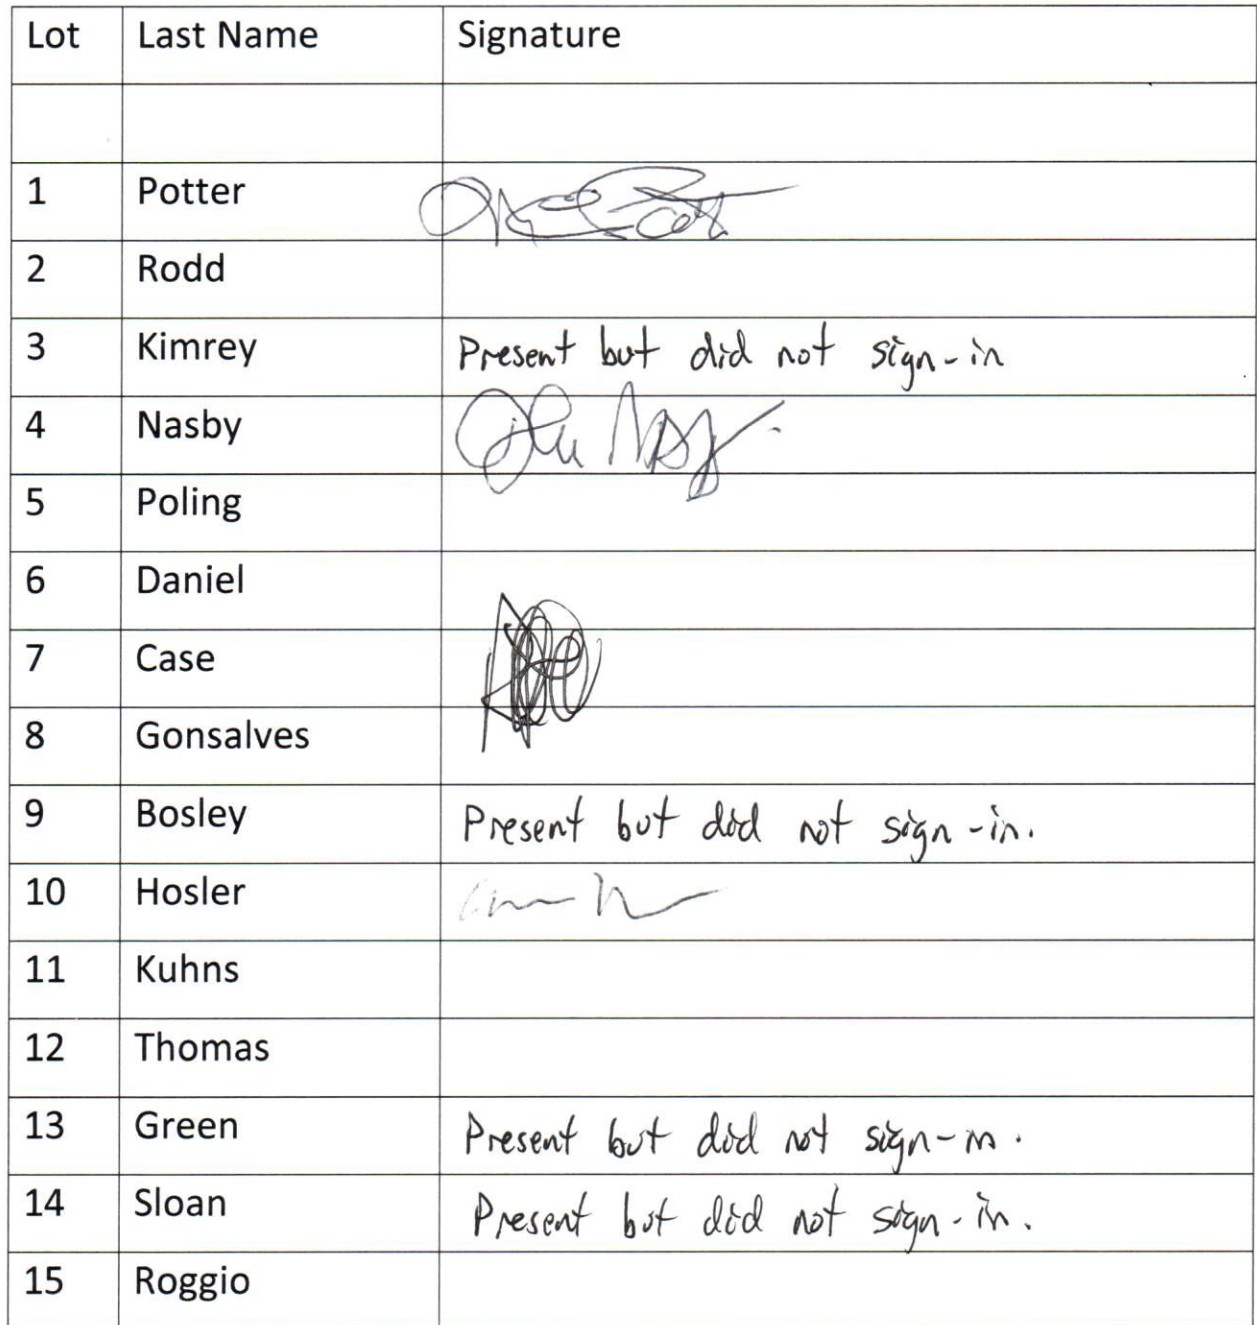 Lot Last Name Signature
1 Potter
2 Rodd
3 Kimrey Present but did not sign-in
4 Nasby
5 Poling
6 Daniel
7 Case
8 Gonsalves
9 Bosley Present but did not sign-in.
10 Hosler
11 Kuhns
12 Thomas
13 Green Present but did not sign-in.
14 Sloan Present but did not sign-in.
15 Roggio